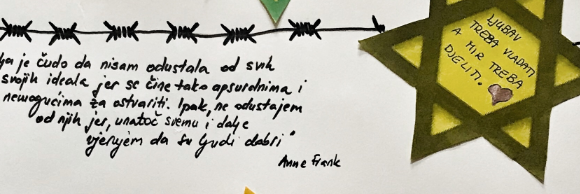 je čudo da nisam odustala od svih
svojih ideala jer se čine tako apsurdnima i
nemogućima za ostvariti. Ipak, ne odustajem
od njih jer, unatoč svemu i dalje
vjerujem da su ljudi dobri"
Anne Frank
LJUBAV
TREBA VLADATI
A MIR TREBA
DJELITI.